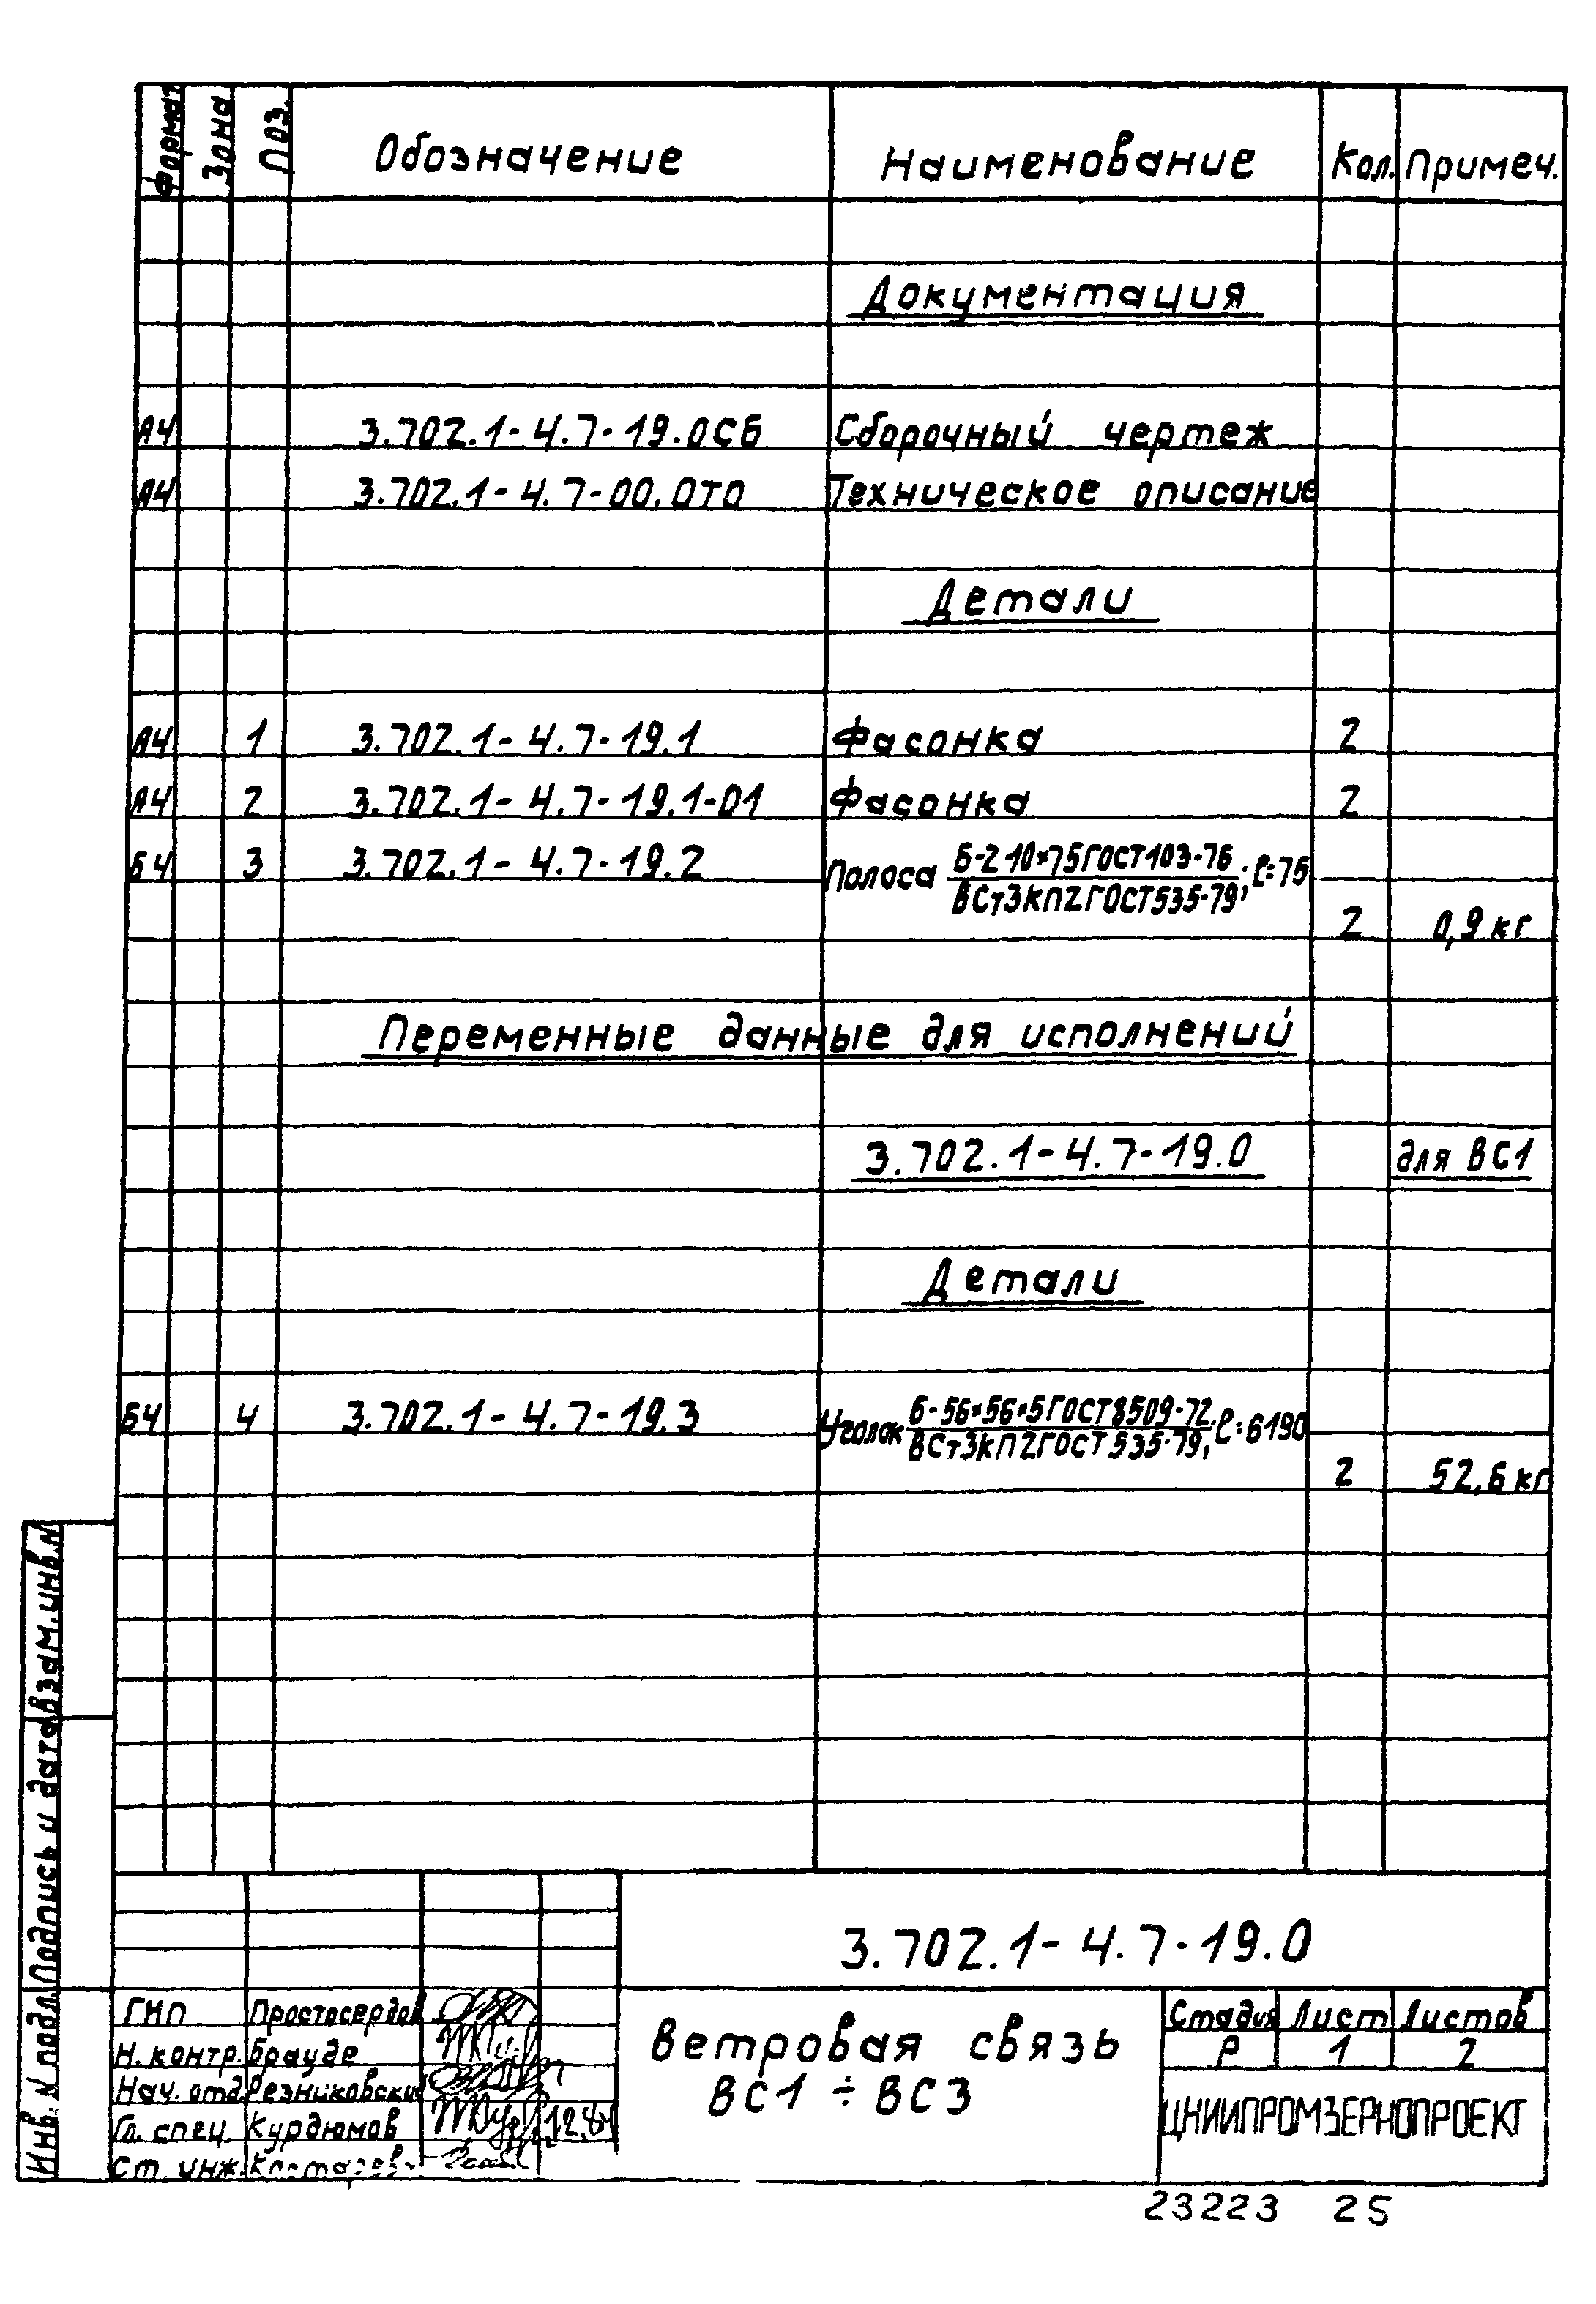 Формат Зона Поз. Обозначение Наименование Кол. Примеч.
Документация
А4 3.702.1-4.7-19.0СБ Сборочный чертеж
А4 3.702.1-4.7-00.0ТО Техническое описание
Детали
А4 1 3.702.1-4.7-19.1 Фасонка 2
А4 2 3.702.1-4.7-19.1-01 Фасонка 2
БЧ 3 3.702.1-4.7-19.2 Полоса Б-2 10×75 ГОСТ 103-76
ВСт3кп2 ГОСТ 535-79; ℓ=75
2 0,9 кг
Переменные данные для исполнений
3.702.1-4.7-19.0 для ВС1
Детали
БЧ 4 3.702.1-4.7-19.3 Уголок Б-56×56×5 ГОСТ 8509-72
ВСт3кп2 ГОСТ 535-79; ℓ=6190
2 52,6 кг
Взам. инв. N
Подпись и дата
Инв. N подл.
3.702.1-4.7-19.0
ГИП Простосердов
Н. контр. Брауде
Нач. отд. Резниковский
Гл. спец. Курдюмов 12.84
Ст. инж.
Ветровая связь
ВС1÷ВС3
Стадия Лист Листов
Р 1 2
ЦНИИПРОМЗЕРНОПРОЕКТ
23223 25